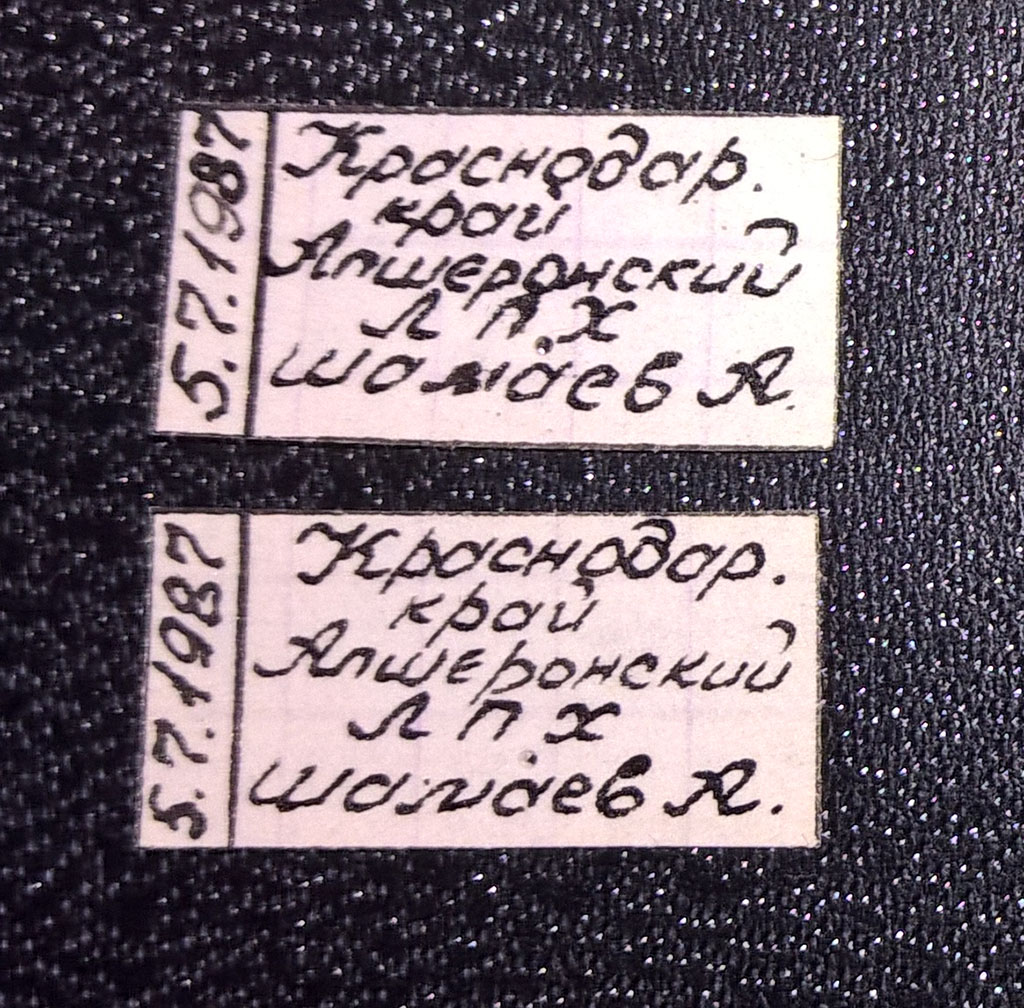 5.7.1987
Краснодар.
край
Апшеронский
Л П Х
шамаев А.
5.7.1987
Краснодар.
край
Апшеронский
Л П Х
шамаев А.